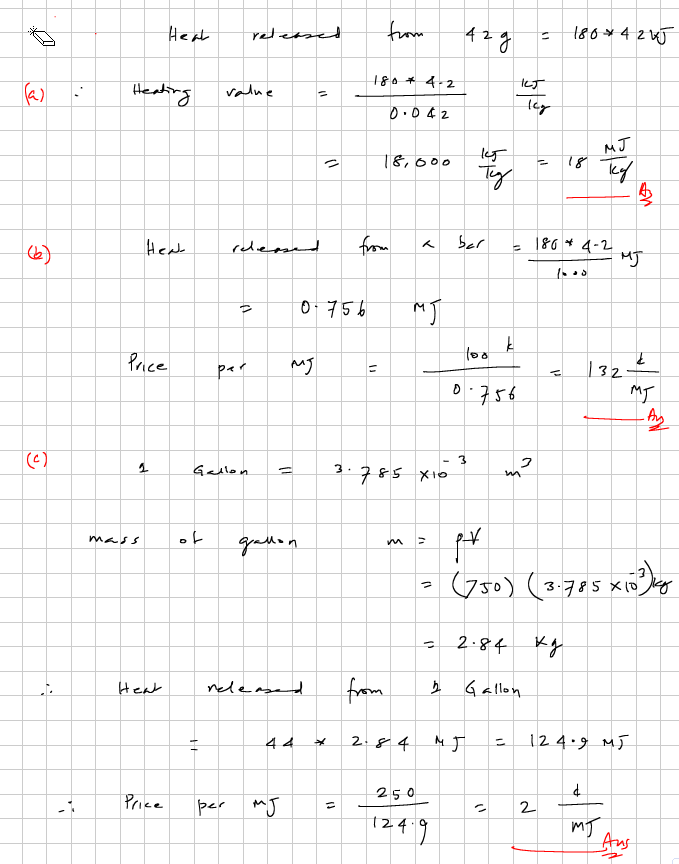 Heat released from 42g = 180*42 kJ
(a) ∴ Heating value = 180*4.2 / 0.042 kJ/kg
= 18,000 kJ/kg = 18 MJ/kg Ans
(b) Heat released from a bar = 180*4.2 / 1000 MJ
= 0.756 MJ
Price per MJ = 100 ¢ / 0.756 = 132 ¢/MJ Ans
(c) 1 Gallon = 3.785 ×10⁻³ m³
mass of gallon m = ρV
= (750) (3.785 ×10⁻³) kg
= 2.84 kg
∴ Heat released from 1 Gallon
= 44 * 2.84 MJ = 124.9 MJ
∴ Price per MJ = 250 / 124.9 = 2 ¢/MJ Ans